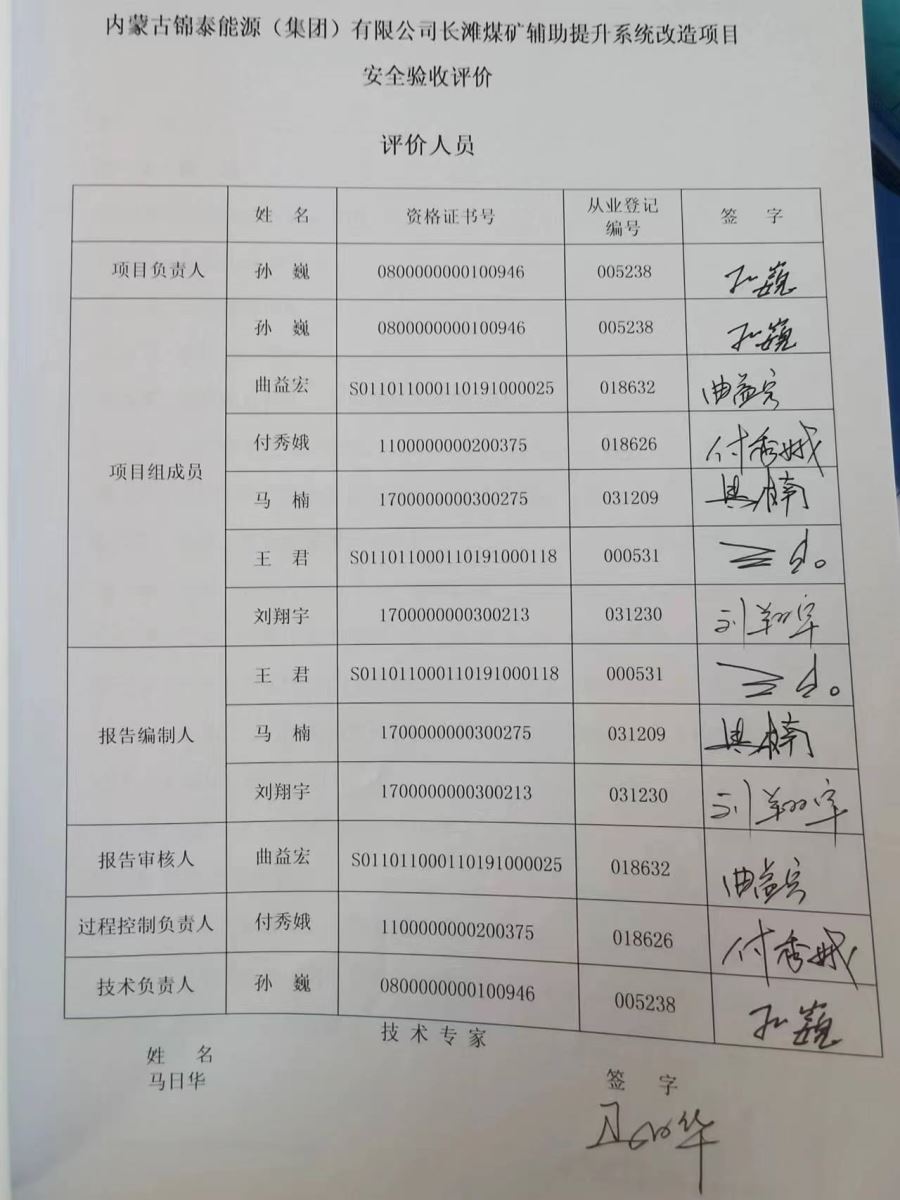 内蒙古锦泰能源（集团）有限公司长滩煤矿辅助提升系统改造项目
安全验收评价
评价人员
姓 名 资格证书号 从业登记编号 签 字
项目负责人 孙 巍 0800000000100946 005238 孙巍
项目组成员 孙 巍 0800000000100946 005238 孙巍
曲益宏 S011011000110191000025 018632 曲益宏
付秀娥 1100000000200375 018626 付秀娥
马 楠 1700000000300275 031209 马楠
王 君 S011011000110191000118 000531 王君
刘翔宇 1700000000300213 031230 刘翔宇
报告编制人 王 君 S011011000110191000118 000531 王君
马 楠 1700000000300275 031209 马楠
刘翔宇 1700000000300213 031230 刘翔宇
报告审核人 曲益宏 S011011000110191000025 018632 曲益宏
过程控制负责人 付秀娥 1100000000200375 018626 付秀娥
技术负责人 孙 巍 0800000000100946 005238 孙巍
技 术 专 家
姓 名 签 字
马日华 马日华